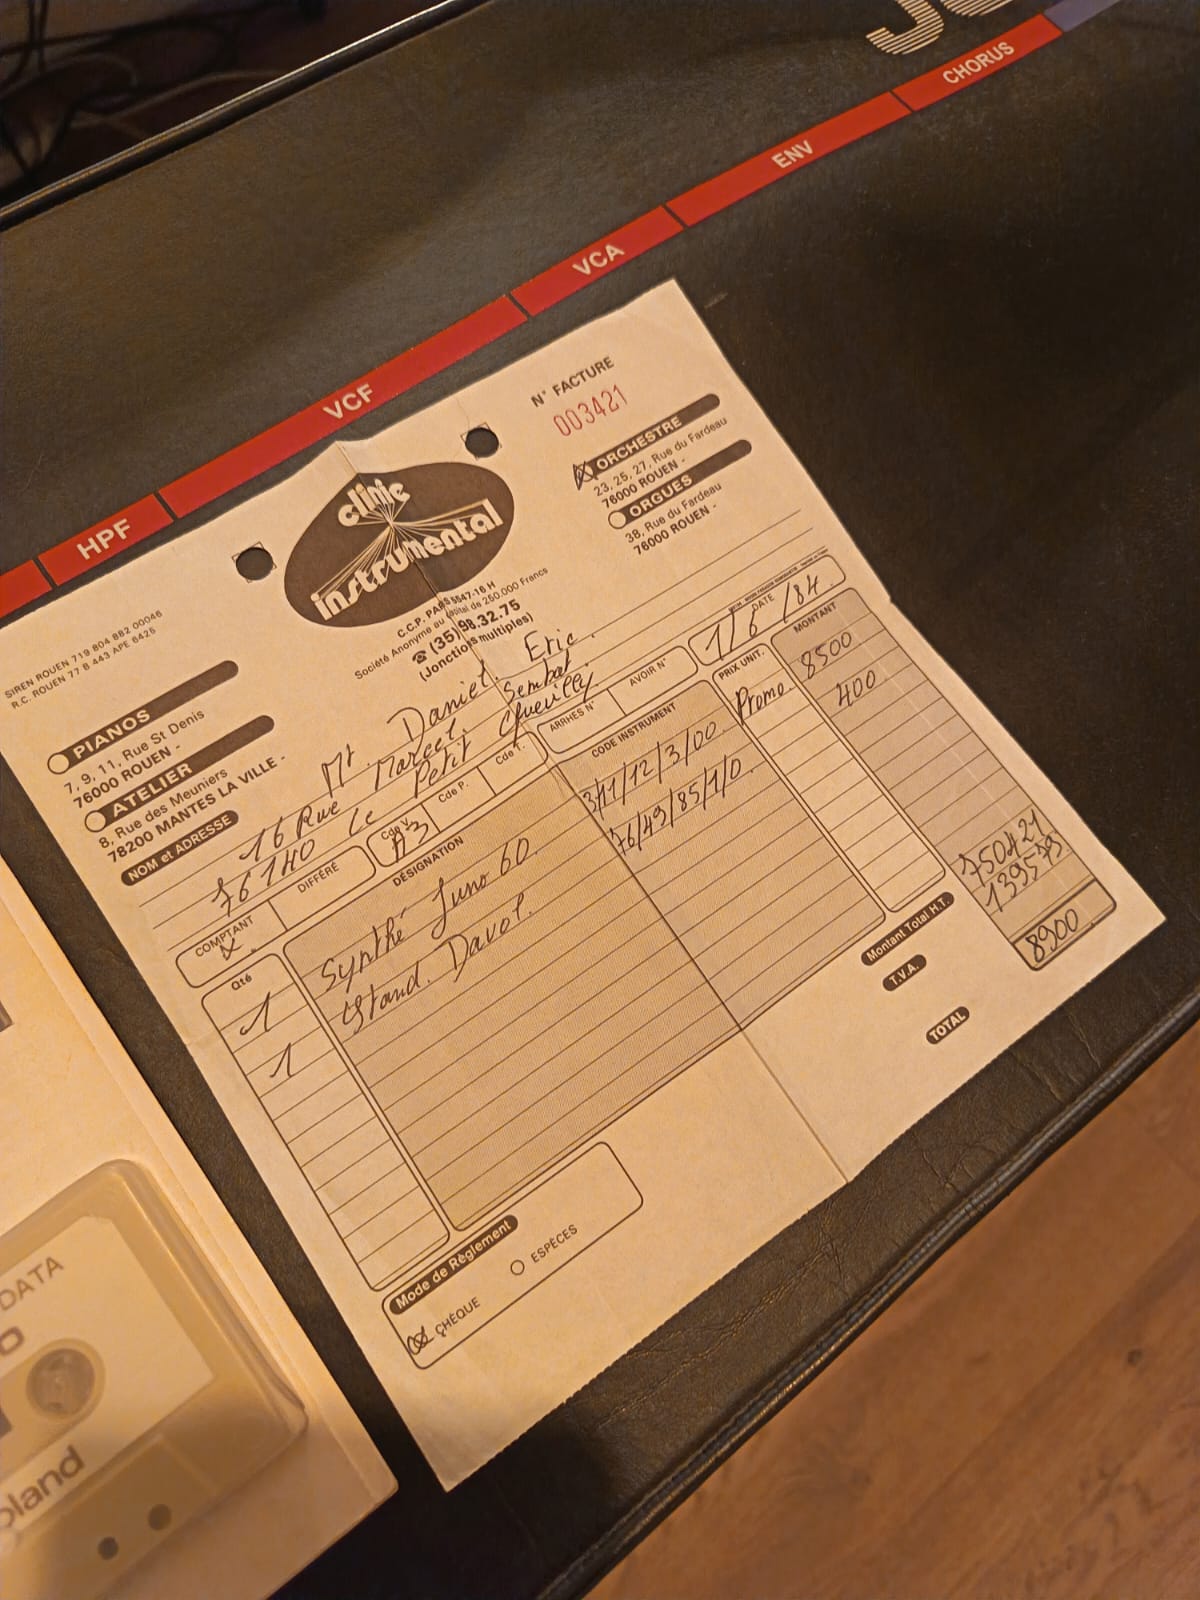 CHORUS
ENV
VCA
VCF
HPF
N° FACTURE
003421
ORCHESTRE
23, 25, 27, Rue du Fardeau
76000 ROUEN -
ORGUES
38, Rue du Fardeau
76000 ROUEN -
clinic
instrumental
C.C.P. PARIS 5547-16 H
Société Anonyme au capital de 250.000 Francs
☎ (35) 98.32.75
(Jonctions multiples)
SIREN ROUEN 719 804 882 00046
R.C. ROUEN 77 B 443 APE 6425
PIANOS
7, 9, 11, Rue St Denis
76000 ROUEN -
ATELIER
8, Rue des Meuniers
78200 MANTES LA VILLE -
NOM et ADRESSE
Mr Daniel Eric.
16 Rue Marcel Sembat
76140 Le Petit Quevilly
COMPTANT
DIFFÉRÉ
Cde V.
A3
Cde P.
Cde T.
ARRHES N°
AVOIR N°
DATE
1/6/84
Qté
DÉSIGNATION
CODE INSTRUMENT
PRIX UNIT.
MONTANT
1 Synthé Juno 60 3/11/12/3/00 Promo. 8500
1 Stand. Davol. 76/49/85/1/0 400
Montant Total H.T. 7504 21
T.V.A. 1395 79
TOTAL 8900
Mode de Règlement
CHÈQUE
ESPÈCES
DATA